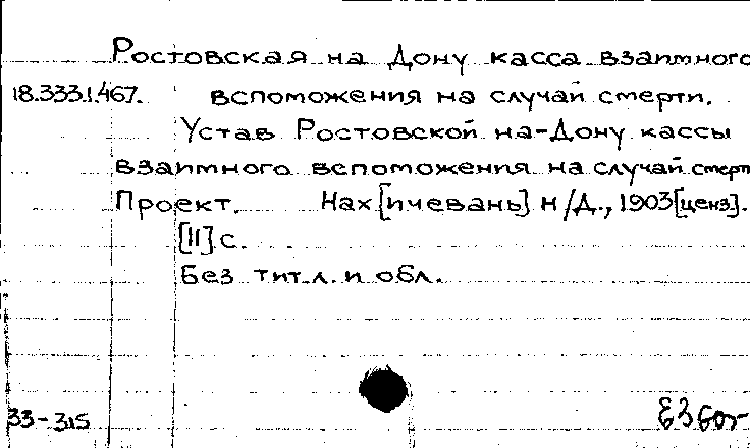 Ростовская на Дону касса взаимного
18.333.1.467. вспоможения на случай смерти.
Устав Ростовской на-Дону кассы
взаимного вспоможения на случай смерти
Проект. Нах[ичевань] н/Д., 1903[ценз].
[11] с.
Без тит.л. и обл.
33-315